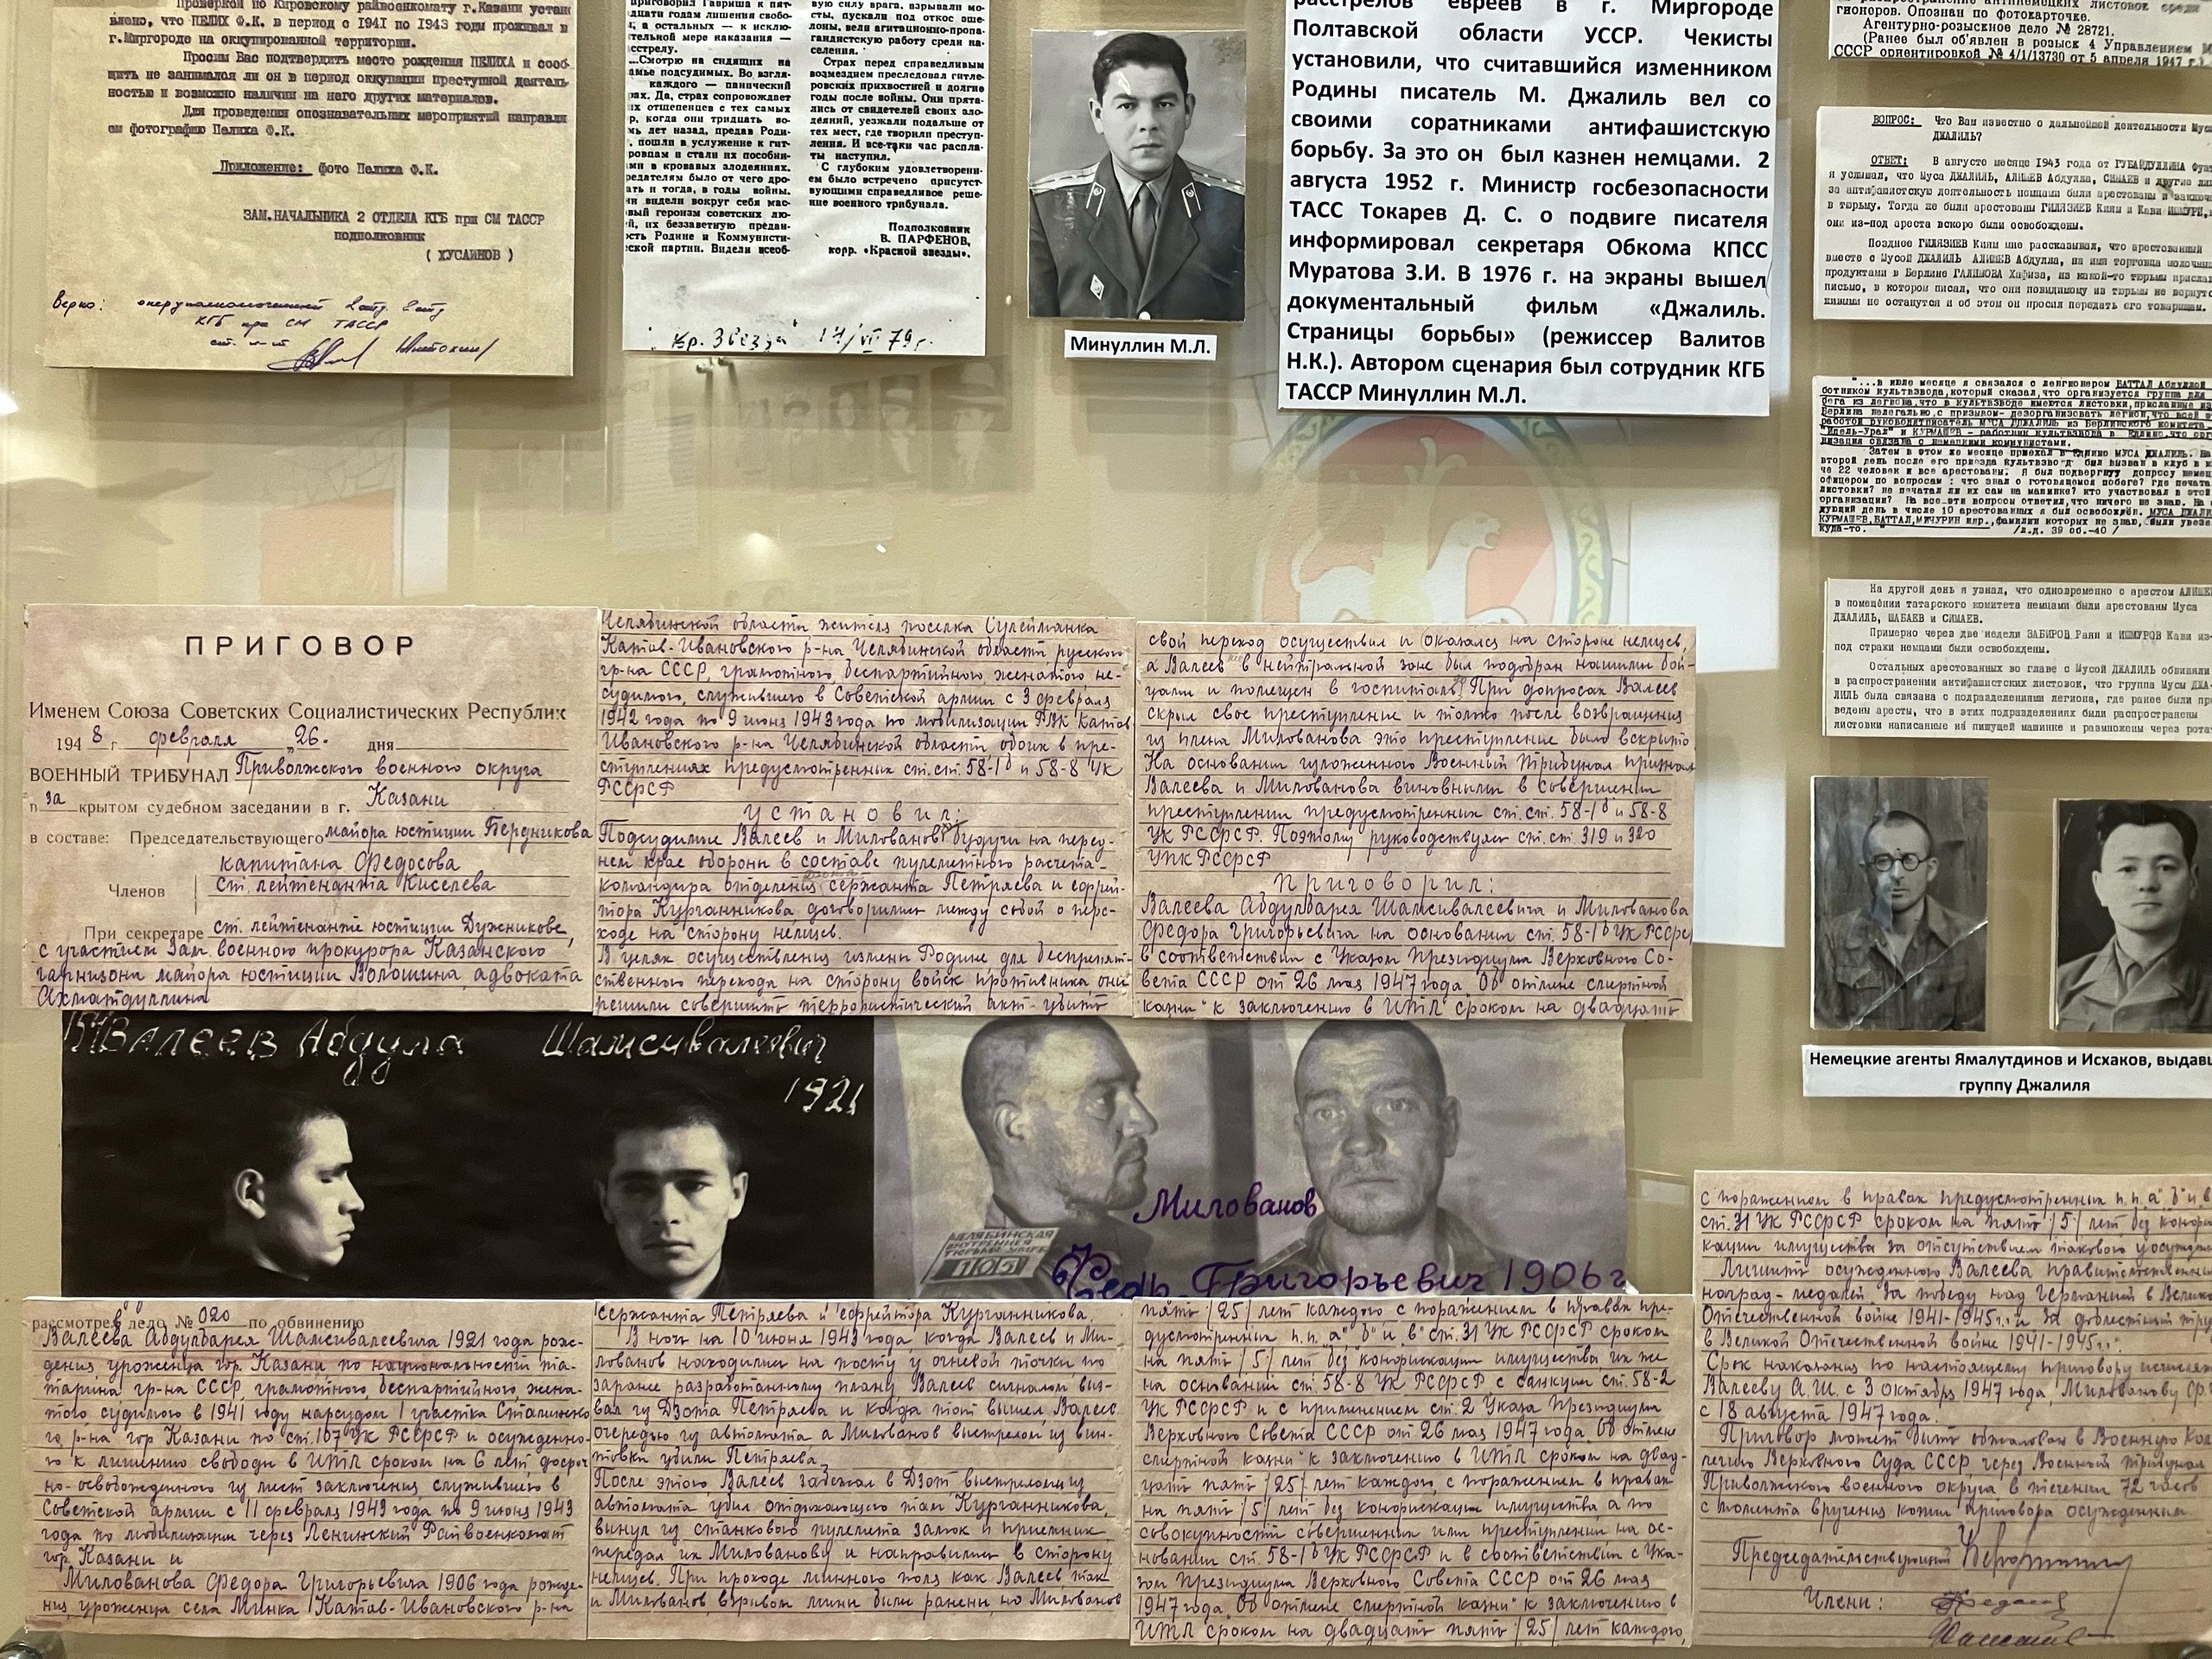 Проверкой по Кировскому райвоенкомату г.Казани устан
влено, что ПЕЛИХ Ф.К. в период с 1941 по 1943 годы проживал в
г.Миргороде на оккупированной территории.
Просим Вас подтвердить место рождения ПЕЛИХА и сооб-
щить не занимался ли он в период оккупации преступной деятель-
ностью и возможно наличии на него других материалов.
Для проведения опознавательных мероприятий направля
ем фотографию Пелиха Ф.К.
Приложение: фото Пелиха Ф.К.
ЗАМ.НАЧАЛЬНИКА 2 ОТДЕЛА КГБ при СМ ТАССР
подполковник
( ХУСАИНОВ )
Верно: оперуполномоченный
КГБ при СМ ТАССР
приговорил Гавриша к пят-
дцати годам лишения свобо-
а остальных — к исклю-
тельной мере наказания —
сстрелу.
...Смотрю на сидящих на
амье подсудимых. Во взгля-
каждого — панический
ах. Да, страх сопровождает
х отщепенцев с тех самых
р, когда они тридцать во-
мь лет назад, предав Роди-
, пошли в услужение к гит-
ровцам и стали их пособни-
ми в кровавых злодеяниях.
редателям было от чего дро-
ать и тогда, в годы войны.
ни видели вокруг себя мас-
вый героизм советских лю-
й, их беззаветную предан-
ость Родине и Коммунисти-
ской партии. Видели всеоб-
вую силу врага, взрывали мо-
сты, пускали под откос эше-
лоны, вели агитационно-пропа-
гандистскую работу среди на-
селения.
Страх перед справедливым
возмездием преследовал гитле-
ровских прихвостней и долгие
годы после войны. Они прята-
лись от свидетелей своих зло-
деяний, уезжали подальше от
тех мест, где творили преступ-
ления. И все-таки час распла-
ты наступил.
С глубоким удовлетворени-
ем было встречено присутст-
вующими справедливое реше-
ние военного трибунала.
Подполковник
В. ПАРФЕНОВ,
корр. «Красной звезды».
Кр. Звезда 14/VI 79г.
Минуллин М.Л.
расстрелов евреев в г. Миргороде
Полтавской области УССР. Чекисты
установили, что считавшийся изменником
Родины писатель М. Джалиль вел со
своими соратниками антифашистскую
борьбу. За это он был казнен немцами. 2
августа 1952 г. Министр госбезопасности
ТАСС Токарев Д. С. о подвиге писателя
информировал секретаря Обкома КПСС
Муратова З.И. В 1976 г. на экраны вышел
документальный фильм «Джалиль.
Страницы борьбы» (режиссер Валитов
Н.К.). Автором сценария был сотрудник КГБ
ТАССР Минуллин М.Л.
гионеров. Опознан по фотокарточке.
Агентурно-розыскное дело № 28721.
(Ранее был объявлен в розыск 4 Управлением М
СССР ориентировкой № 4/1/13730 от 5 апреля 1947 г.)
ВОПРОС: Что Вам известно о дальнейшей деятельности Мусы
ДЖАЛИЛЬ?
ОТВЕТ: В августе месяце 1943 года от ГУБАЙДУЛЛИНА
я услышал, что Муса ДЖАЛИЛЬ, АЛИШЕВ Абдулла, СИМАЕВ и другие
за антифашистскую деятельность немцами были арестованы и заключ
в тюрьму. Тогда же были арестованы ГИЛЯЗИЕВ Киям и Кави ИШМУРИ,
они из-под ареста вскоре были освобождены.
Позднее ГИЛЯЗИЕВ Киям мне рассказывал, что арестованный
вместе с Мусой ДЖАЛИЛЬ АЛИШЕВ Абдулла, на имя торговца молочным
продуктами в Берлине ГАЛИМОВА Хафиза, из какой-то тюрьмы прислал
письмо, в котором писал, что они повидимому из тюрьмы не вернутся
живыми не останутся и об этом он просил передать его товарищам.
"...в июле месяце я связался с легионером БАТТАЛ Абдуллой
ботником культвзвода, который сказал, что организуется группа для
бега из легиона, что в культвзводе имеются листовки, присланные из
Берлина нелегально, с призывом- дезорганизовать легион, что всей
работой руководит писатель МУСА ДЖАЛИЛЬ из Берлинского комитета
"Идель-Урал" и КУРМАШЕВ - работник культвзвода в Едлино, что орг
низация связана с немецкими коммунистами.
Затем в этом же месяце приехал в Едлино МУСА ДЖАЛИЛЬ. На
второй день после его приезда культвзвод был вызван в клуб в ко
че 22 человек и все арестованы. Я был подвергнут допросу немец
офицером по вопросам : что знал о готовящемся побеге? где печата
листовки? не печатал ли их сам на машинке? кто участвовал в этой
организации? На все эти вопросы ответил, что ничего не знаю. На
дующий день в числе 10 арестованных я был освобожден. МУСА ДЖАЛИ
КУРМАШЕВ, БАТТАЛ, МИЧУРИН и др., фамилии которых не знаю, были увезе
куда-то. /л.д. 39 об.-40 /
На другой день я узнал, что одновременно с арестом АЛИШЕ
в помещении татарского комитета немцами были арестованы Муса
ДЖАЛИЛЬ, ШАБАЕВ и СИМАЕВ.
Примерно через две недели ЗАБИРОВ Раян и ИШМУРОВ Кави из-
под стражи немцами были освобождены.
Остальных арестованных во главе с Мусой ДЖАЛИЛЬ обвиняли
в распространении антифашистских листовок, что группа Мусы ДЖА-
ЛИЛЬ была связана с подразделениями легиона, где ранее были про
ведены аресты, что в этих подразделениях были распространены
листовки написанные на пишущей машинке и размножены через рота
Немецкие агенты Ямалутдинов и Исхаков, выдавш
группу Джалиля
ПРИГОВОР
Именем Союза Советских Социалистических Республик
1948 г. февраля „26. дня
ВОЕННЫЙ ТРИБУНАЛ Приволжского военного округа
в закрытом судебном заседании в г. Казани
в составе: Председательствующего майора юстиции Бердникова
капитана Федосова
Членов ст. лейтенанта Киселева
При секретаре ст. лейтенанте юстиции Дужникове,
с участием Зам. военного прокурора Казанского
гарнизона майора юстиции Волошина, адвоката
Ахматдуллина
Челябинской области жителя поселка Сулеймянка
Катав-Ивановского р-на Челябинской области русского
гр-на СССР, грамотного, беспартийного, женатого не-
судимого, служившего в Советской армии с 3 февраля
1942 года по 9 июня 1943 года по мобилизации РВК Катав
Ивановского р-на Челябинской области обоих в пре-
ступлениях предусмотренных ст.ст. 58-1б и 58-8 УК
РСФСР
Установил:
Подсудимые Валеев и Милованов будучи на перед-
нем крае обороны в составе пулеметного расчета-
командира отделения сержанта Петряева и ефрей-
тора Курганникова договорились между собой о пере-
ходе на сторону немцев.
В целях осуществления измены Родине для беспрепят-
ственного перехода на сторону войск противника, они
решили совершить террористический акт- убить
свой переход осуществил и оказался на стороне немцев,
а Валеев в нейтральной зоне был подобран нашими бой-
цами и помещен в госпиталь. При допросах Валеев
скрыл свое преступление и только после возвращения
из плена Милованова это преступление было вскрыто.
На основании изложенного Военный Трибунал признал
Валеева и Милованова виновными в совершении
преступлении предусмотренных ст.ст. 58-1б и 58-8
УК РСФСР. Поэтому руководствуясь ст.ст 319 и 320
УПК РСФСР
Приговорил:
Валеева Абдулбарея Шамсивалеевича и Милованова
Федора Григорьевича на основании ст. 58-1б УК РСФСР
в соответствии с Указом Президиума Верховного Со-
вета СССР от 26 мая 1947 года „Об отмене смертной
казни" к заключению в ИТЛ сроком на двадцать
Валеев Абдула Шамсивалеевич
1921
ЧЕЛЯБИНСКАЯ
ВНУТРЕННЯЯ
ТЮРЬМА УМГБ
1105
Милованов
Федр. Григорьевич 1906г
рассмотрев дело № 020 по обвинению
Валеева Абдулбарея Шамсивалеевича 1921 года рож-
дения уроженца гор. Казани по национальности та-
тарина гр-на СССР, грамотного, беспартийного, жена-
того судимого в 1941 году нарсудом 1 участка Сталинско
го р-на гор Казани по ст. 107 УК РСФСР и осужденно-
го к лишению свободы в ИТЛ сроком на 6 лет, досроч
но-освобожденного из мест заключения служившего в
Советской армии с 11 февраля 1943 года по 9 июня 1943
года по мобилизации через Ленинский Райвоенкомат
гор. Казани и
Милованова Федора Григорьевича 1906 года рожде-
ния, уроженца села Минка Катав-Ивановского р-на
Сержанта Петряева и ефрейтора Курганникова.
В ночь на 10 июня 1943 года, когда Валеев и Ми-
лованов находились на посту у огневой точки по
заранее разработанному плану, Валеев сигналом выз-
вал из Дзота Петряева и когда тот вышел, Валеев
очередью из автомата а Милованов выстрелом из вин-
товки убили Петряева.
После этого Валеев забежал в Дзот выстрелом из
автомата убил отдыхающего там Курганникова,
вынул из станкового пулемета замок и приемник
передал их Милованову и направились в сторону
немцев. При проходе минного поля как Валеев так
и Милованов, взрывом мины были ранены, но Милованов
пять /25/ лет каждого с поражением в правах пре-
дусмотренных п.п. „а" „б" и „в" ст. 31 УК РСФСР сроком
на пять /5/ лет без конфискации имущества, их же
на основании ст. 58-8 УК РСФСР с санкции ст. 58-2
УК РСФСР и с применением ст. 2 Указа Президиума
Верховного Совета СССР от 26 мая 1947 года „Об отмене
смертной казни" к заключению в ИТЛ сроком на двад-
цать пять /25/ лет каждого, с поражением в правах
на пять /5/ лет без конфискации имущества, а по
совокупности совершенных ими преступлений на ос-
новании ст. 58-1б УК РСФСР и в соответствии с Ука-
зом Президиума Верховного Совета СССР от 26 мая
1947 года „Об отмене смертной казни" к заключению в
ИТЛ сроком на двадцать пять /25/ лет каждого,
с поражением в правах предусмотренных п.п. „а" „б" и в
ст. 31 УК РСФСР сроком на пять /5/ лет без конфис
кации имущества за отсутствием такового у осужден
Лишить осужденного Валеева правительственных
наград- медалей „За победу над Германией в Велико
Отечественной войне 1941-1945г." и „За доблестный тру
в Великой Отечественной войне 1941-1945г."
Срок наказания по настоящему приговору исчислять
Валееву А.Ш. с 3 октября 1947 года, Милованову Ф.Г.
с 18 августа 1947 года.
Приговор может быть обжалован в Военную Кол
легию Верховного Суда СССР через Военный трибунал
Приволжского военного округа в течении 72 часов
с момента вручения копии приговора осужденным.
Председательствующий
Члены: